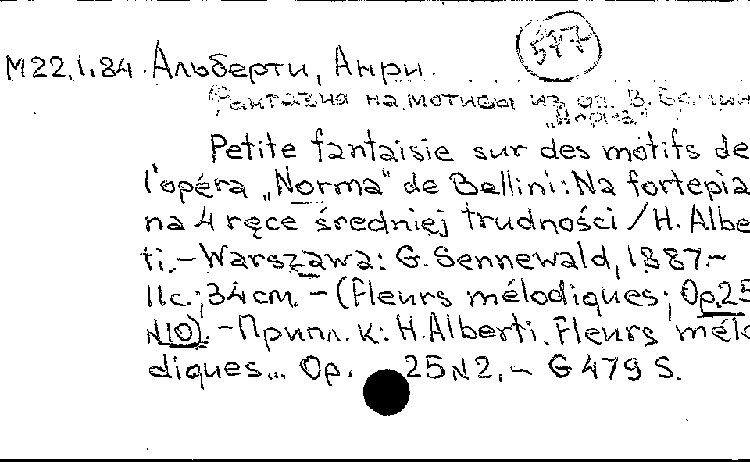 577
M22.1.84. Альберти, Анри.
Фантазия на мотивы из оп. В. Беллин
„Норма"
Petite fantaisie sur des motifs de
l'opéra „Norma" de Bellini: Na fortepia
na 4 ręce średniej trudności / H. Albe
ti. - Warszawa: G. Sennewald, 1887. -
11c.; 34cm. - (Fleurs mélodiques; Op.25
N10). - Припл. к: H. Alberti. Fleurs mélo
diques... Op. 25 N2. - G 479 S.